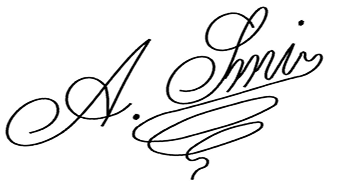 A. Smi